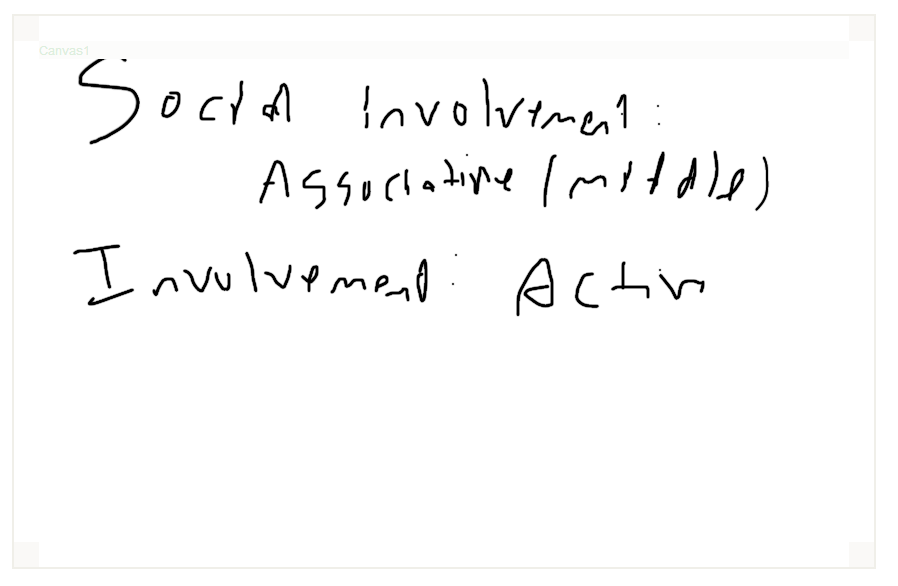 Canvas1
Social Involvement:
Associative (middle)
Involvement: Activ